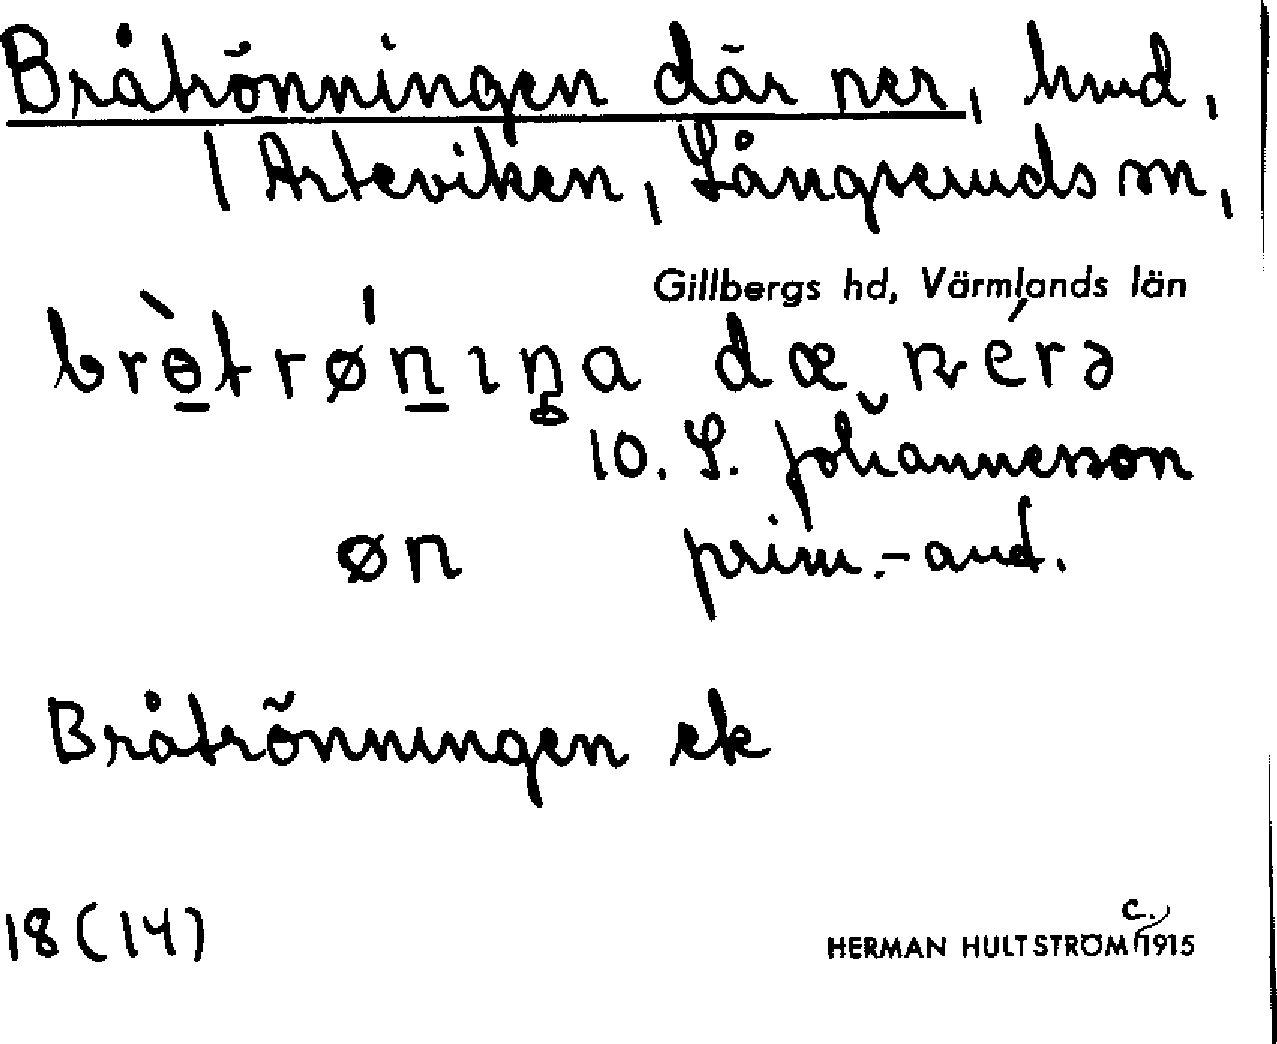 Bråtrönningen där ner, hmd,
| Arteviken, Långseruds sn,
Gillbergs hd, Värmlands län
10. L. Johannesson
øn prim.-aud.
Bråtrönningen ek
18(14)
c.
HERMAN HULTSTRÖM 1915